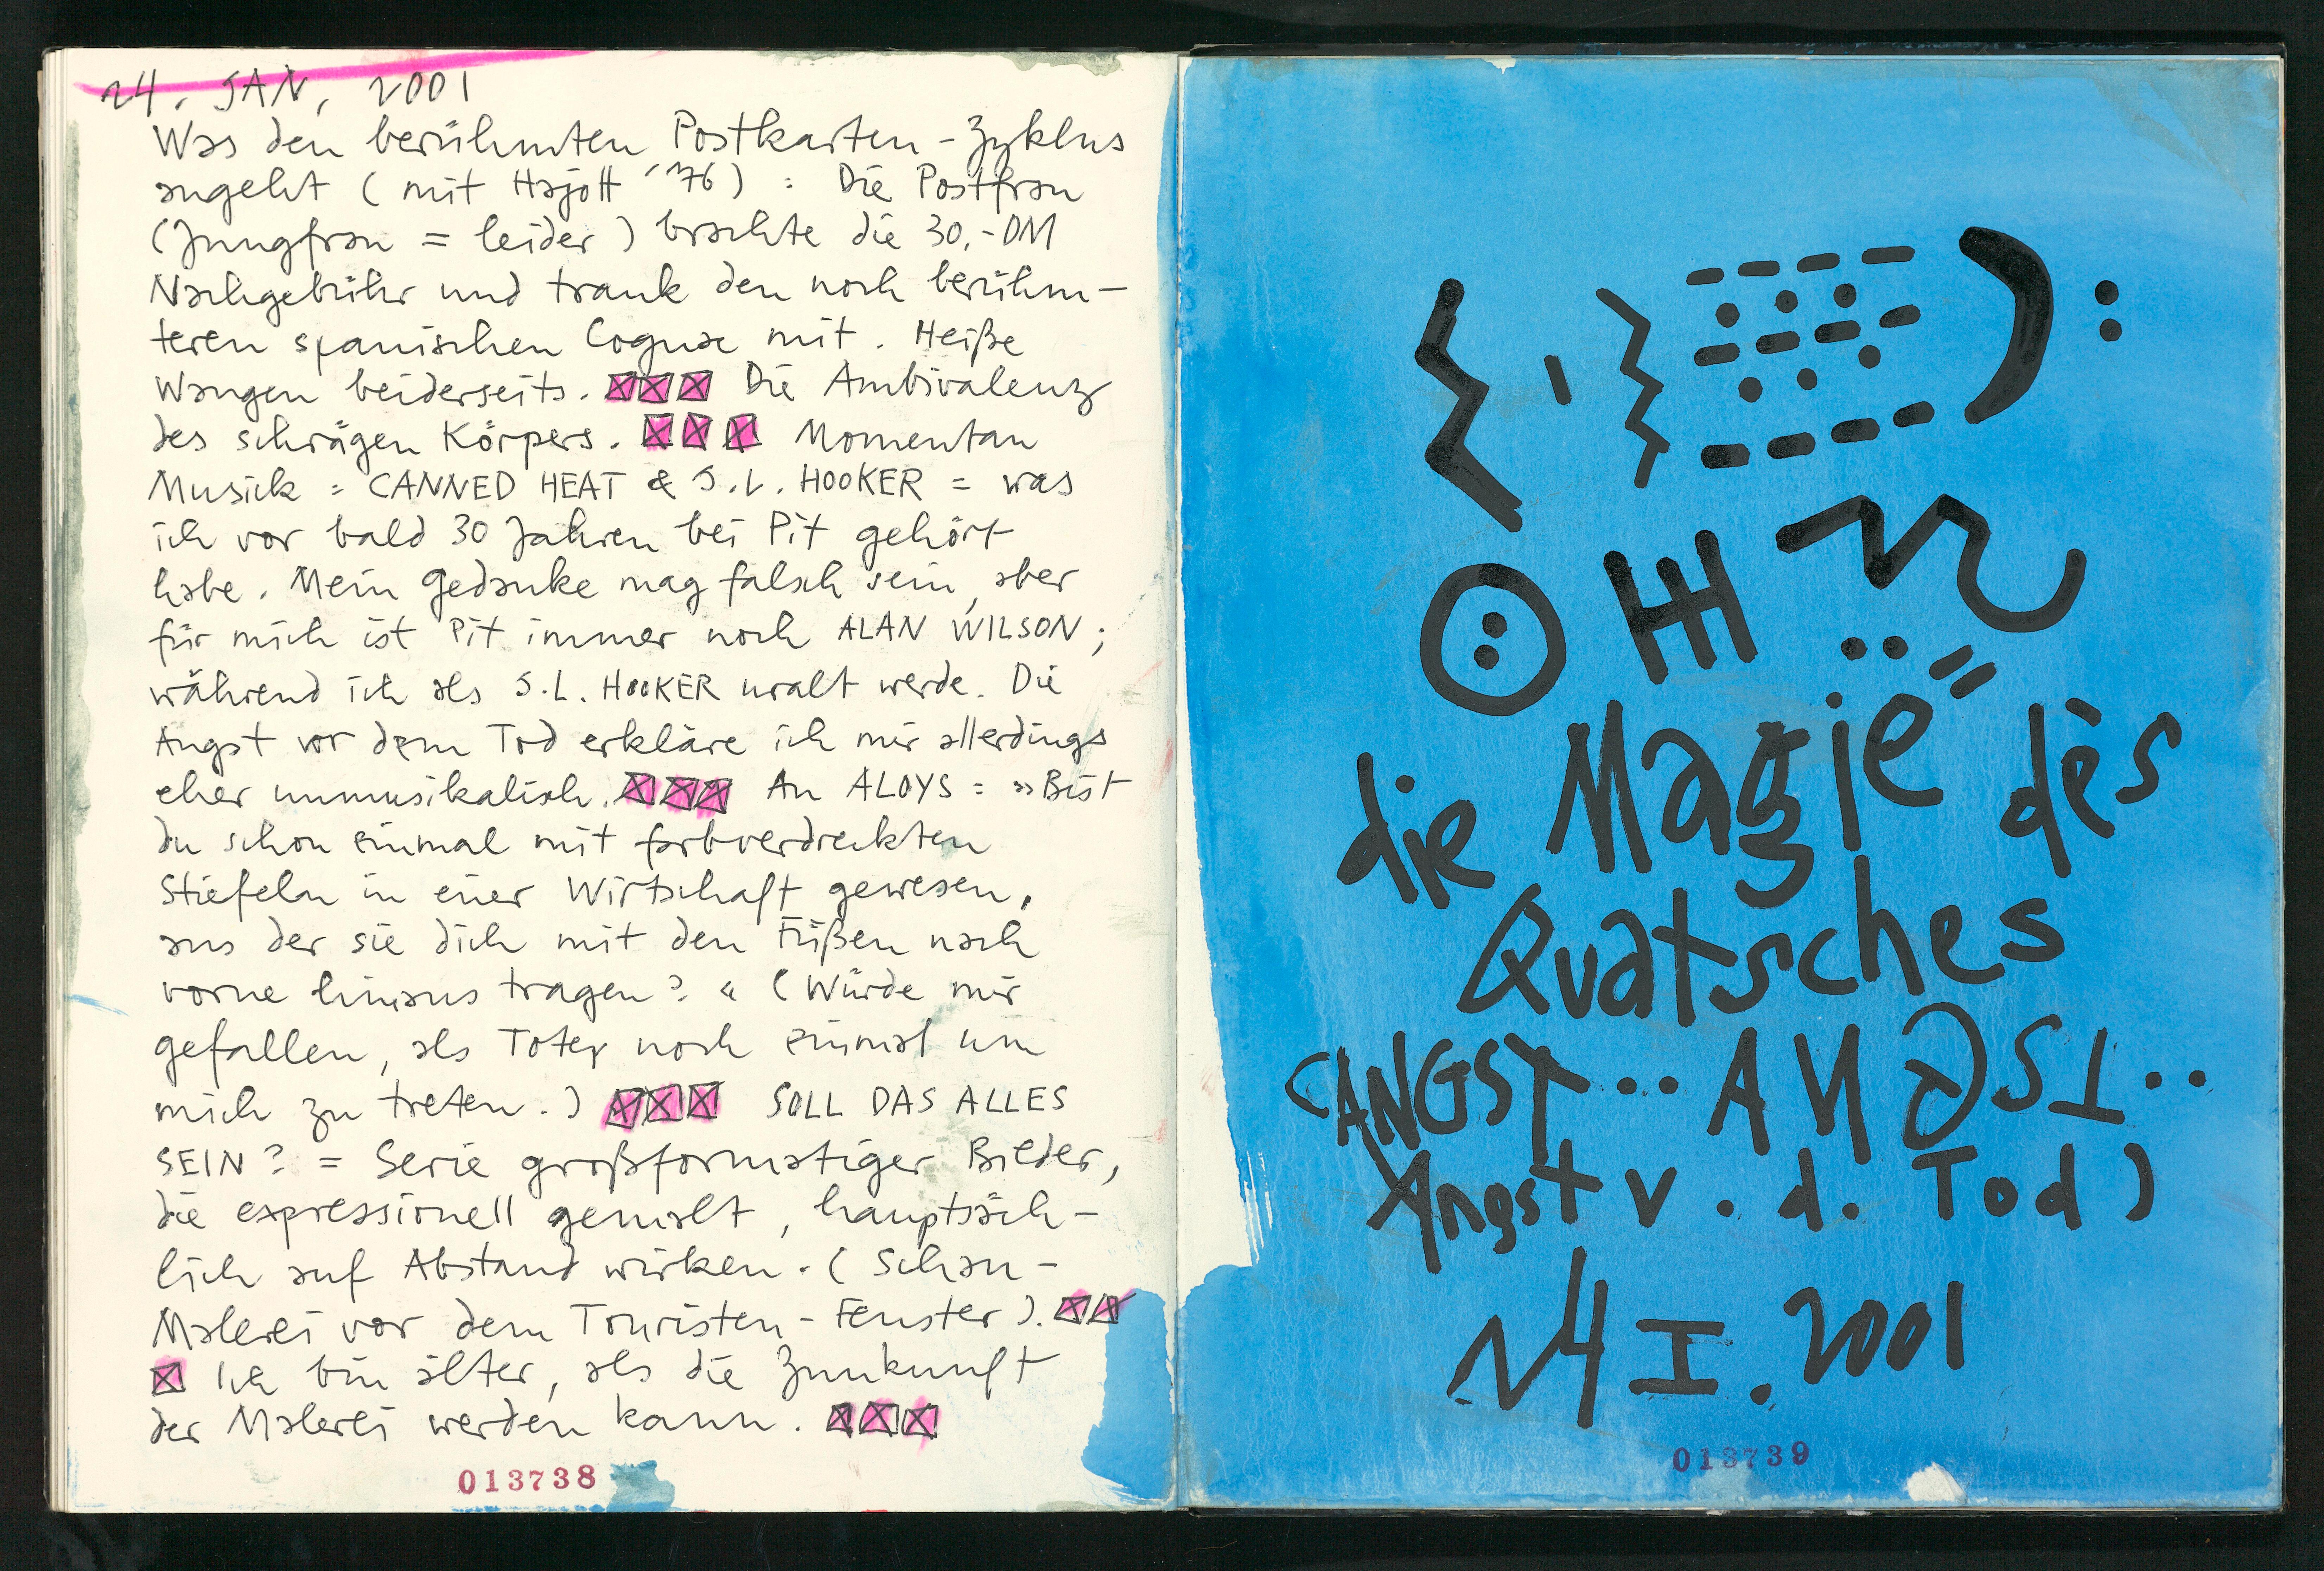 14. JAN. 2001
Was den berühmten Postkarten-Zyklus
angeht (mit Hajott '76) : Die Postfrau
(Jungfrau = leider) brachte die 30,-DM
Nachgebühr und trank den noch berühm-
teren spanischen Cognac mit. Heiße
Wangen beiderseits. Die Ambivalenz
des schrägen Körpers. Momentan
Musick = CANNED HEAT & J.L. HOOKER = was
ich vor bald 30 Jahren bei Pit gehört
habe. Mein Gedanke mag falsch sein, aber
für mich ist Pit immer noch ALAN WILSON;
während ich als J.L. HOOKER uralt werde. Die
Angst vor dem Tod erkläre ich mir allerdings
eher unmusikalisch. An ALOYS = »Bist
du schon einmal mit farbverdreckten
Stiefeln in einer Wirtschaft gewesen,
aus der sie dich mit den Füßen nach
vorne hinaus tragen?« (Würde mir
gefallen, als Toter noch einmal um
mich zu treten.) SOLL DAS ALLES
SEIN? = Serie großformatiger Bilder,
die expressionell gemalt, hauptsäch-
lich auf Abstand wirken. (Schau-
Malerei vor dem Touristen-Fenster).
Ich bin älter, als die Zunkunft
der Malerei werden kann.
013738
die Magie" des
Quatsches
(ANGST.. ANGST..
Angst v. d. Tod)
14 I. 2001
013739